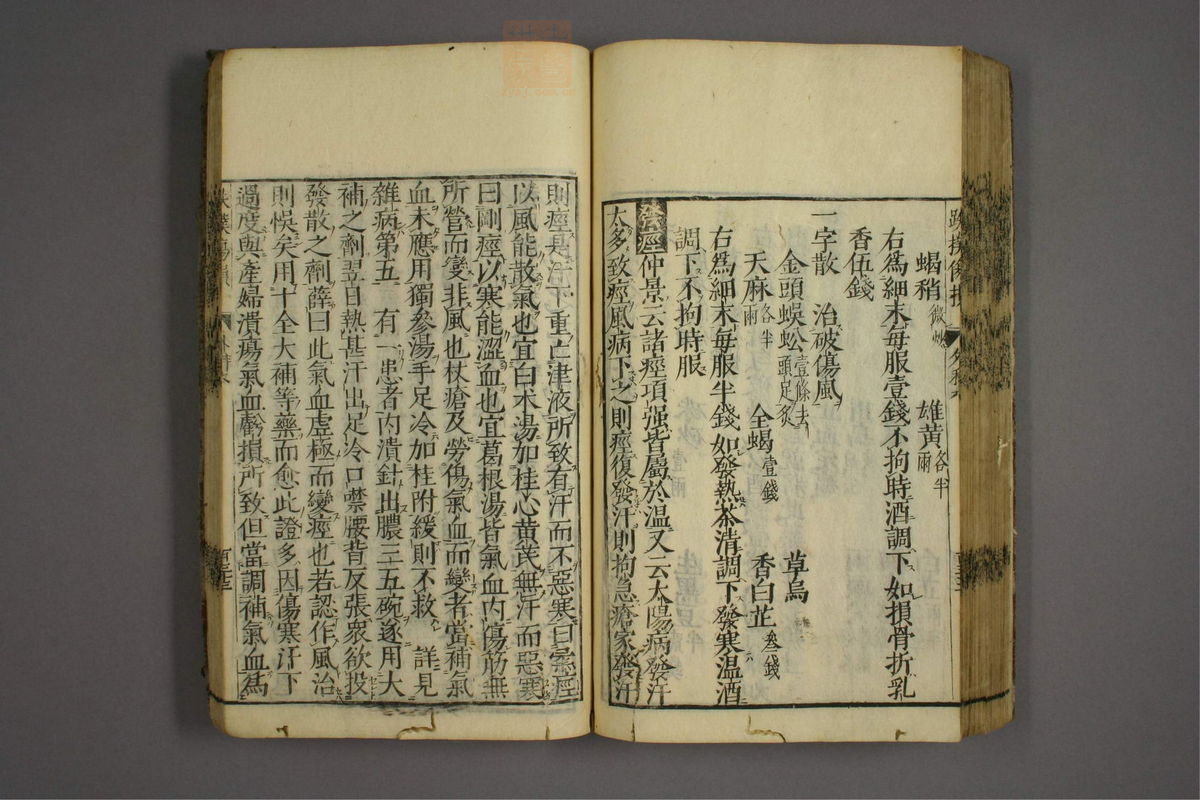 蝎稍微炒 雄黃各半兩
右為細末每服壹錢不拘時酒調下如損骨折乳
香伍錢
一字散 治破傷風
金頭蜈蚣壹條去頭足炙 全蝎壹錢 草烏
天麻各半兩 香白芷叁錢
右為細末每服半錢如發熱茶清調下發寒温酒
調下不拘時服
發痙 仲景云諸痙項强皆屬於溫又云太陽病發汗
太多致痙風病下之則痙復發汗則拘急瘡家發汗
則痙是汗下重亡津液所致有汗而不惡寒曰柔痙
以風能散氣也宜白朮湯加桂心黃芪無汗而惡寒
曰剛痙以寒能澀血也宜葛根湯皆氣血內傷筋無
所營而變非風也杖瘡及勞傷氣血而變者當補氣
血未應用獨參湯手足冷加桂附緩則不救 詳見
雜病第五 有一患者內潰針出膿三五碗遂用大
補之劑翌日熱甚汗出足冷口噤腰背反張衆欲投
發散之劑薛曰此氣血虛極而變痙也若認作風治
則悞矣用十全大補等藥而愈此證多因傷寒汗下
過度與產婦潰瘍氣血虧損所致但當調補氣血為